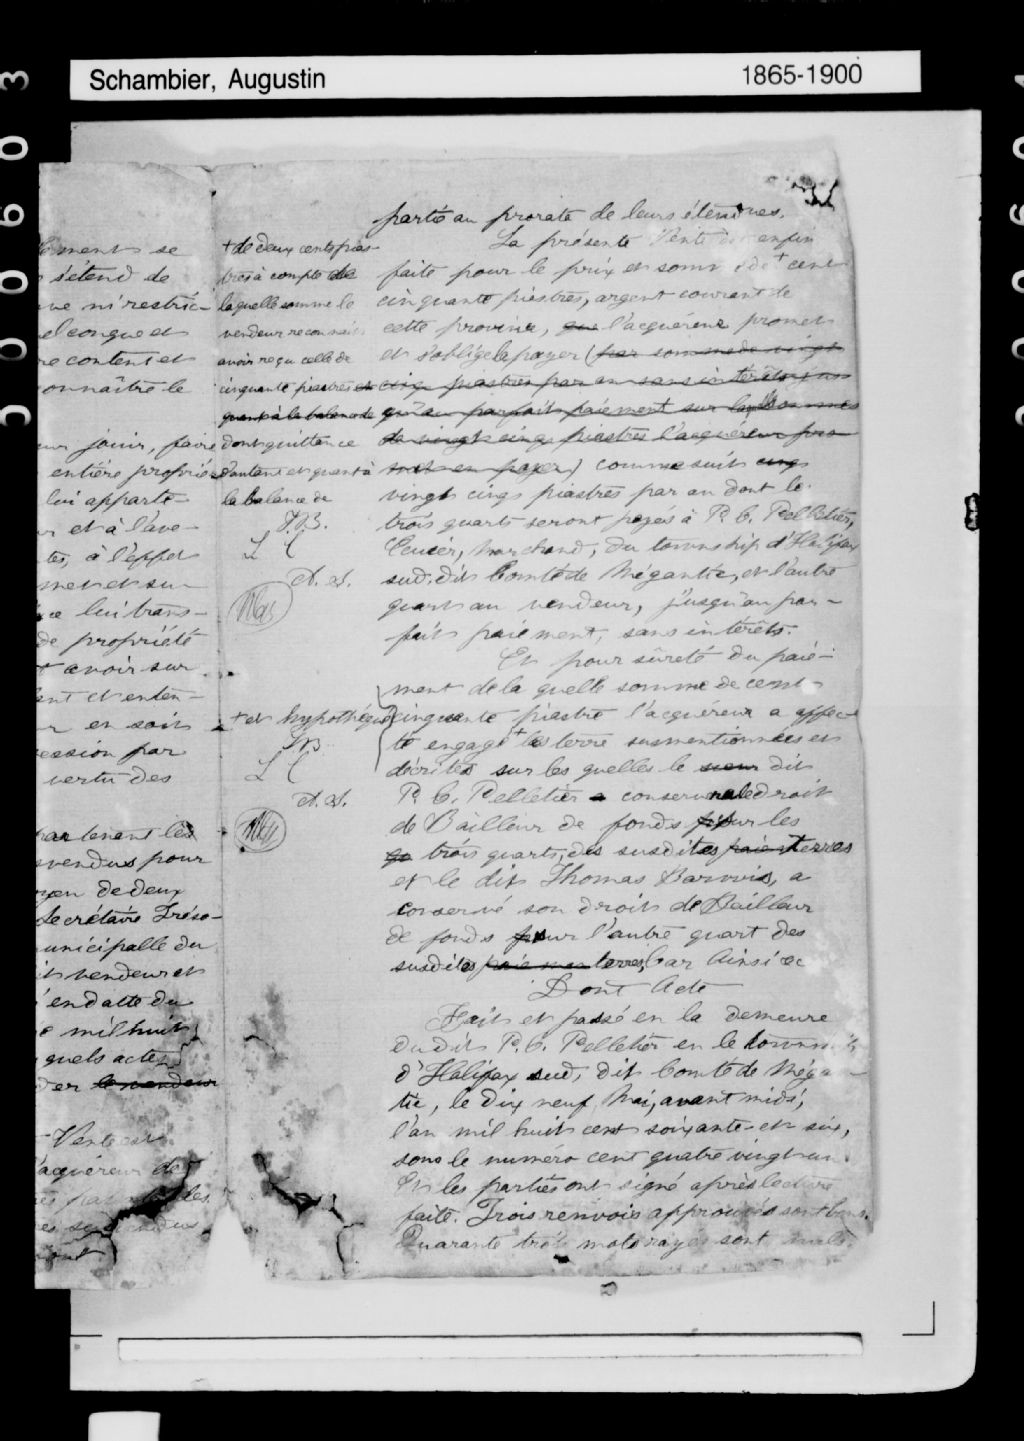 Schambier, Augustin
1865-1900
ment se
s'étend de
ni restric-
elconque et
content et
onnaître le
jouir, faire
entière proprié
lui apparte-
et à l'ave-
à l'effet
met et su
lui trans-
de propriété
avoir sur
et enten-
en soit
ession par
vertu des
par tenant les
vendus pour
de deux
Secrétaire Tréso-
unicipalle du
vendeur et
en datte du
mil huit
quels actes
le vendeur
Vente est
acquéreur de
+ de deux cents pias-
tres à compte de
laquelle somme le
vendeur reconnait
avoir reçu celle de
cinquante piastres et
quant à la balance de
dont quittance
d'autant et quant à
la balance de
T.B.
L C
A. S.
+ et hypothéqué
TB
L C
A. S.
partie au prorata de leurs étendues.
La présente Vente est enfin
faite pour le prix et somme de + cent
cinquante piastres, argent courant de
cette province, que l'acquéreur promet
et s'oblige de payer (par somme de vingt
cinq piastres par an sans intérêts jus
qu'au parfait paiement sur les sommes
de vingt cinq piastres l'acquéreur pro
met en payer) comme suit cinq
vingt cinq piastres par an dont le
trois quarts seront payés à P. C. Pelletier,
Ecuier, Marchand, du township d'Halifax
sud, dit Comté de Mégantic, et l'autre
quart au vendeur, jusqu'au par-
fait paiement, sans intérêts.
Et pour sûreté du paie-
ment de la quelle somme de cent
cinquante piastre l'acquéreur a affec
té engagé + les terre susmentionnées et
décrites sur les quelles le sieur dit
P. C. Pelletier a conservé le droit
de Bailleur de fonds pour les
trois quarts, des susdites terres
et le dit Thomas Barwis, a
conservé son droit de Bailleur
de fonds pour l'autre quart des
susdites terres, Car Ainsi &c
Dont Acte
Fait et passé en la demeure
du dit P. C. Pelletier en le township
d'Halifax sud, dit Comté de Méga-
tic, le dix neuf Mai, avant midi,
l'an mil huit cent soixante et six,
sous le numéro cent quatre vingt un.
Et les parties ont signé après lecture
faite. Trois renvois approuvés sont bons.
Quarante trois mots rayés sont nuls.